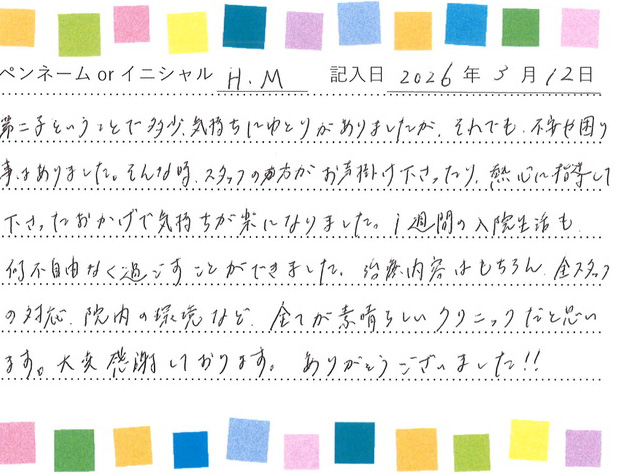 ペンネーム or イニシャル H.M 記入日 2026年3月12日
第二子ということで多少、気持ちにゆとりがありましたが、それでも、不安や困り
事はありました。そんな時、スタッフの方がお声掛け下さったり、熱心に指導して
下さったおかげで気持ちが楽になりました。1週間の入院生活も、
何不自由なく過ごすことができました。治療内容はもちろん、全スタッフ
の対応、院内の環境など、全てが素晴らしいクリニックだと思い
ます。大変感謝しております。ありがとうございました!!